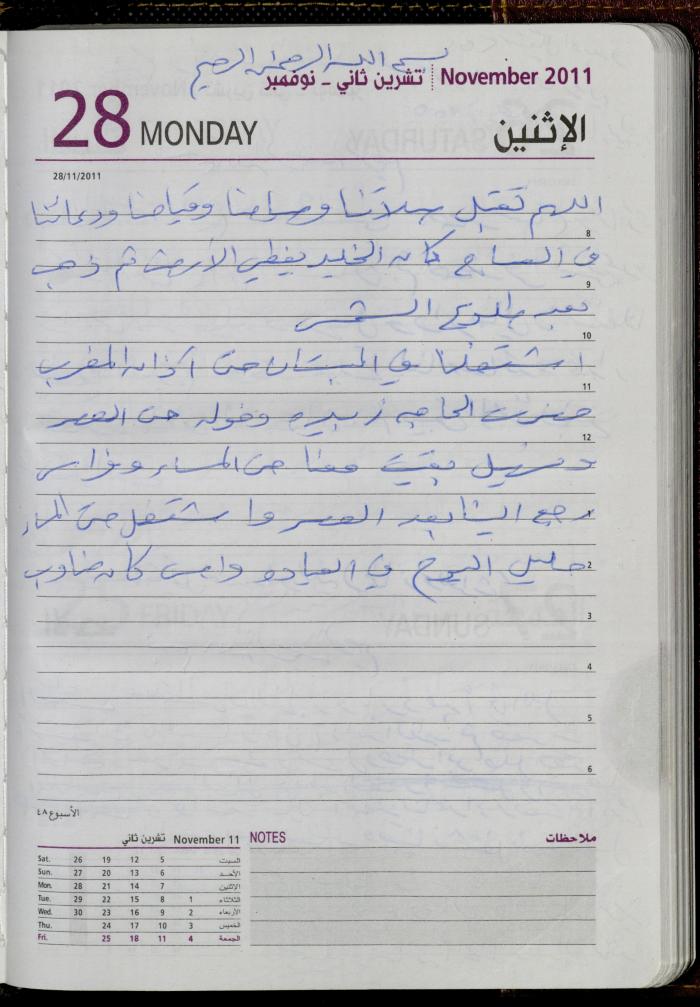 بسم الله الرحمن الرحيم
November 2011 تشرين ثاني - نوفمبر
28 MONDAY الإثنين
28/11/2011
اللهم تقبل صلاتنا وصيامنا وقيامنا ودعائنا
8
في الصباح كان الجليد يغطي الأرض ثم ذهب
9
بعد طلوع الشمس
10
اشتغلنا في البستان حتى آذان المغرب
11
حضرت الحاجه زبيده وخوله حتى العصر
12
بقيت معنا حتى المساء
رجع بعد العصر واشتغل حتى المساء
2
خليل اليوم في العياده وامس كان
3
4
5
6
الأسبوع ٤٨
November 11 تشرين ثاني
Sat. 26 19 12 5 السبت
Sun. 27 20 13 6 الأحد
Mon. 28 21 14 7 الإثنين
Tue. 29 22 15 8 1 الثلاثاء
Wed. 30 23 16 9 2 الأربعاء
Thu. 24 17 10 3 الخميس
Fri. 25 18 11 4 الجمعة
NOTES ملاحظات